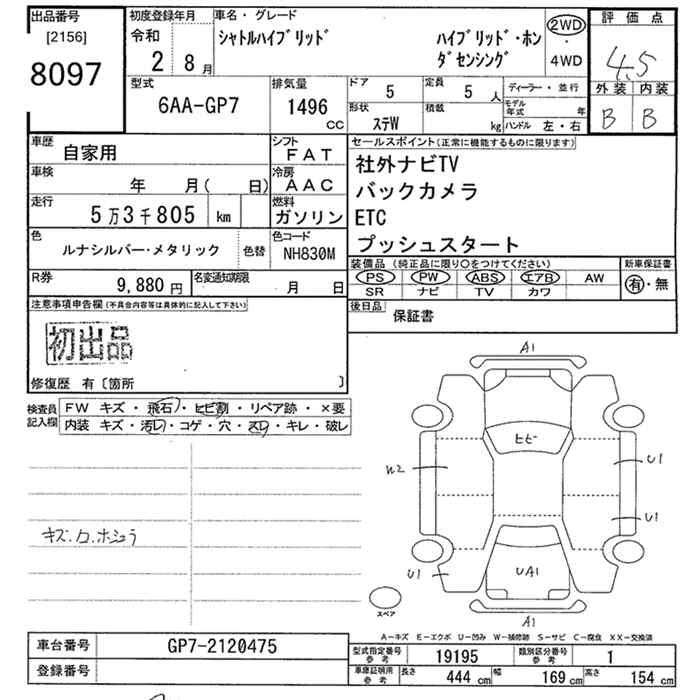 出品番号
[2156]
8097
初度登録年月
令和
2 8月
車名・グレード
シャトルハイブリッド
ハイブリッド・ホン
ダセンシング
2WD
・
4WD
評価点
4.5
外装 内装
B B
型式
6AA-GP7
排気量
1496
CC
ドア
5
定員
5 人
ディーラー・並行
形状
ステW
積載
kg
モデル
年式 年
ハンドル 左・右
車歴
自家用
シフト
FAT
車検
年 月( 日)
冷房
AAC
走行
5万3千805 km
燃料
ガソリン
色
ルナシルバー・メタリック
色替
色コード
NH830M
R券
9,880円
名変通知期限
月 日
セールスポイント(正常に機能するものに限ります)
社外ナビTV
バックカメラ
ETC
プッシュスタート
装備品 (純正品に限り○をつけてください)
新車保証書
PS PW ABS エアB AW
有・無
SR ナビ TV カワ
後日品
保証書
注意事項申告欄(不具合内容等は具体的に記入して下さい)
初出品
修復歴 有〔箇所 〕
検査員
記入欄
FW キズ・飛石・ヒビ割・リペア跡・×要
内装 キズ・汚レ・コゲ・穴・スレ・キレ・破レ
キズ.
A1
ヒビ
W2
U1
U1
U1
UA1
A1
スペア
A-キズ E-エクボ U-凹み W-補修跡 S-サビ C-腐食 XX-交換済
車台番号
GP7-2120475
登録番号
型式指定番号
参考
19195
類別区分番号
参考
1
車庫証明用
参考
長さ
444 cm
幅
169 cm
高さ
154 cm